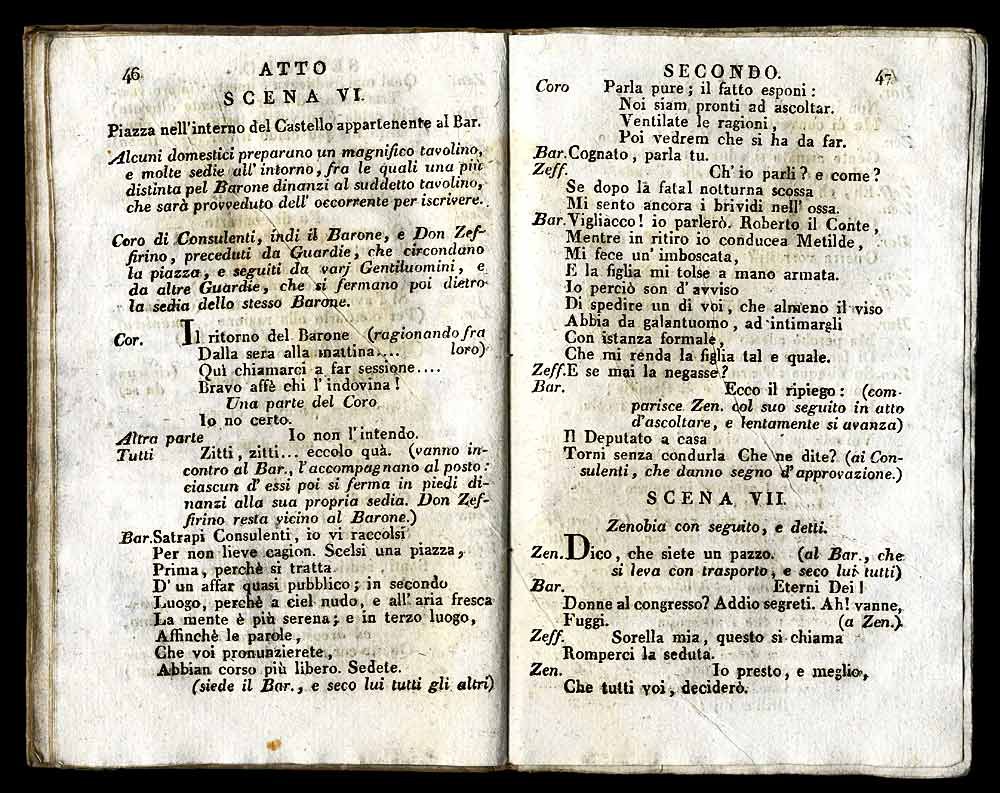 46
ATTO
SCENA VI.
Piazza nell'interno del Castello appartenente al Bar.
Alcuni domestici preparano un magnifico tavolino,
e molte sedie all'intorno, fra le quali una più
distinta pel Barone dinanzi al suddetto tavolino,
che sarà provveduto dell' occorrente per iscrivere.
Coro di Consulenti, indi il Barone, e Don Zef-
firino, preceduti da Guardie, che circondano
la piazza, e seguiti da varj Gentiluomini, e
da altre Guardie, che si fermano poi dietro
la sedia dello stesso Barone.
Cor. Il ritorno del Barone (ragionando fra
Dalla sera alla mattina.... loro)
Quì chiamarci a far sessione....
Bravo affè chi l'indovina!
Una parte del Coro
Io no certo.
Altra parte Io non l'intendo.
Tutti Zitti, zitti... eccolo quà. (vanno in-
contro al Bar., l'accompagnano al posto:
ciascun d' essi poi si ferma in piedi di-
nanzi alla sua propria sedia. Don Zef-
firino resta vicino al Barone.)
Bar. Satrapi Consulenti, io vi raccolsi
Per non lieve cagion. Scelsi una piazza,
Prima, perchè si tratta
D' un affar quasi pubblico; in secondo
Luogo, perchè a ciel nudo, e all' aria fresca
La mente è più serena; e in terzo luogo,
Affinchè le parole,
Che voi pronunzierete,
Abbian corso più libero. Sedete.
(siede il Bar., e seco lui tutti gli altri)
SECONDO.
47
Coro Parla pure; il fatto esponi:
Noi siam pronti ad ascoltar.
Ventilate le ragioni,
Poi vedrem che si ha da far.
Bar. Cognato, parla tu.
Zeff. Ch' io parli? e come?
Se dopo la fatal notturna scossa
Mi sento ancora i brividi nell' ossa.
Bar. Vigliacco! io parlerò. Roberto il Conte,
Mentre in ritiro io conducea Metilde,
Mi fece un' imboscata,
E la figlia mi tolse a mano armata.
Io perciò son d' avviso
Di spedire un di voi, che almeno il viso
Abbia da galantuomo, ad intimargli
Con istanza formale,
Che mi renda la figlia tal e quale.
Zeff. E se mai la negasse?
Bar. Ecco il ripiego: (com-
parisce Zen. col suo seguito in atto
d'ascoltare, e lentamente si avanza)
Il Deputato a casa
Torni senza condurla Che ne dite? (ai Con-
sulenti, che danno segno d'approvazione.)
SCENA VII.
Zenobia con seguito, e detti.
Zen. Dico, che siete un pazzo. (al Bar., che
si leva con trasporto, e seco lui tutti)
Bar. Eterni Dei!
Donne al congresso? Addio segreti. Ah! vanne,
Fuggi. (a Zen.)
Zeff. Sorella mia, questo si chiama
Romperci la seduta.
Zen. Io presto, e meglio,
Che tutti voi, deciderò.